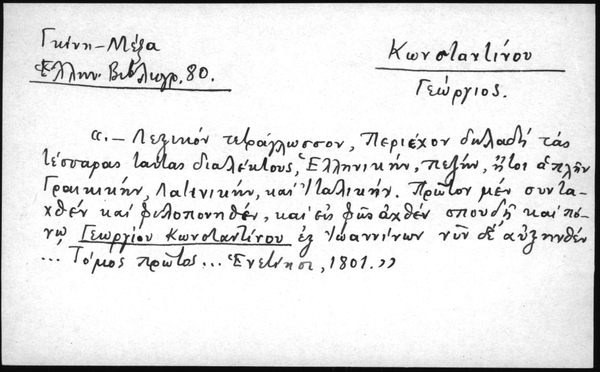 Γκίνη-Μέξα
Ἑλλην. Βιβλιογρ. 80.
Κωνσταντίνου
Γεώργιος.
α.- Λεξικόν τετράγλωσσον, Περιέχον δηλαδή τάς
τέσσαρας ταύτας διαλέκτους, Ἑλληνικήν, πεζήν, ἤτοι ἁπλῆν
Γραικικήν, Λατινικήν, καί Ἰταλικήν. Πρῶτον μέν συντα-
χθέν καί φιλοπονηθέν, καί εἰς φῶς ἀχθέν σπουδῇ καί πό-
νῳ Γεωργίου Κωνσταντίνου ἐξ Ἰωαννίνων νῦν δέ αὐξηνθέν
... Τόμος πρῶτος... Ἐνετίησι, 1801.»